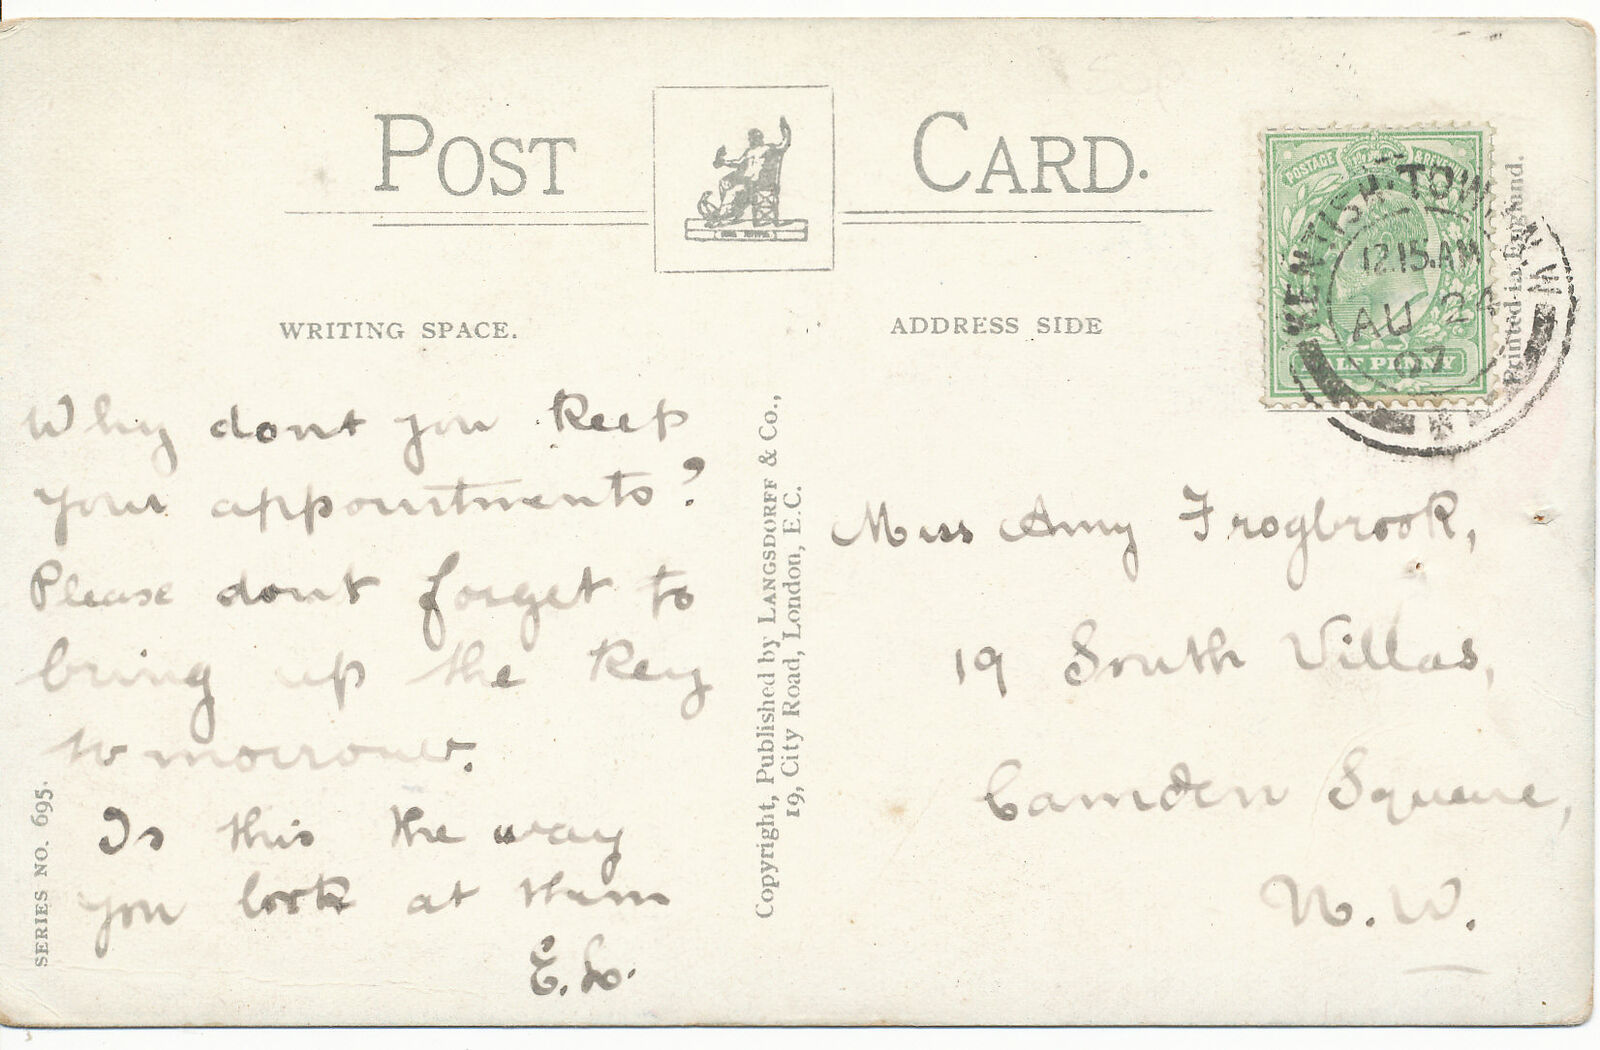 POST CARD.
WRITING SPACE.
ADDRESS SIDE
POSTAGE & REVENUE
HALF PENNY
KENTISH TOWN N.W.
12.15.AM
AU 24
07
Printed in England.
Why dont you keep
your appointments?
Please dont forget to
bring up the key
to morrow.
Is this the way
you look at them
E. L.
Miss Amy Frogbrook,
19 South Villas,
Camden Square,
N. W.
Copyright, Published by LANGSDORFF & Co.,
19, City Road, London, E.C.
SERIES NO. 695.